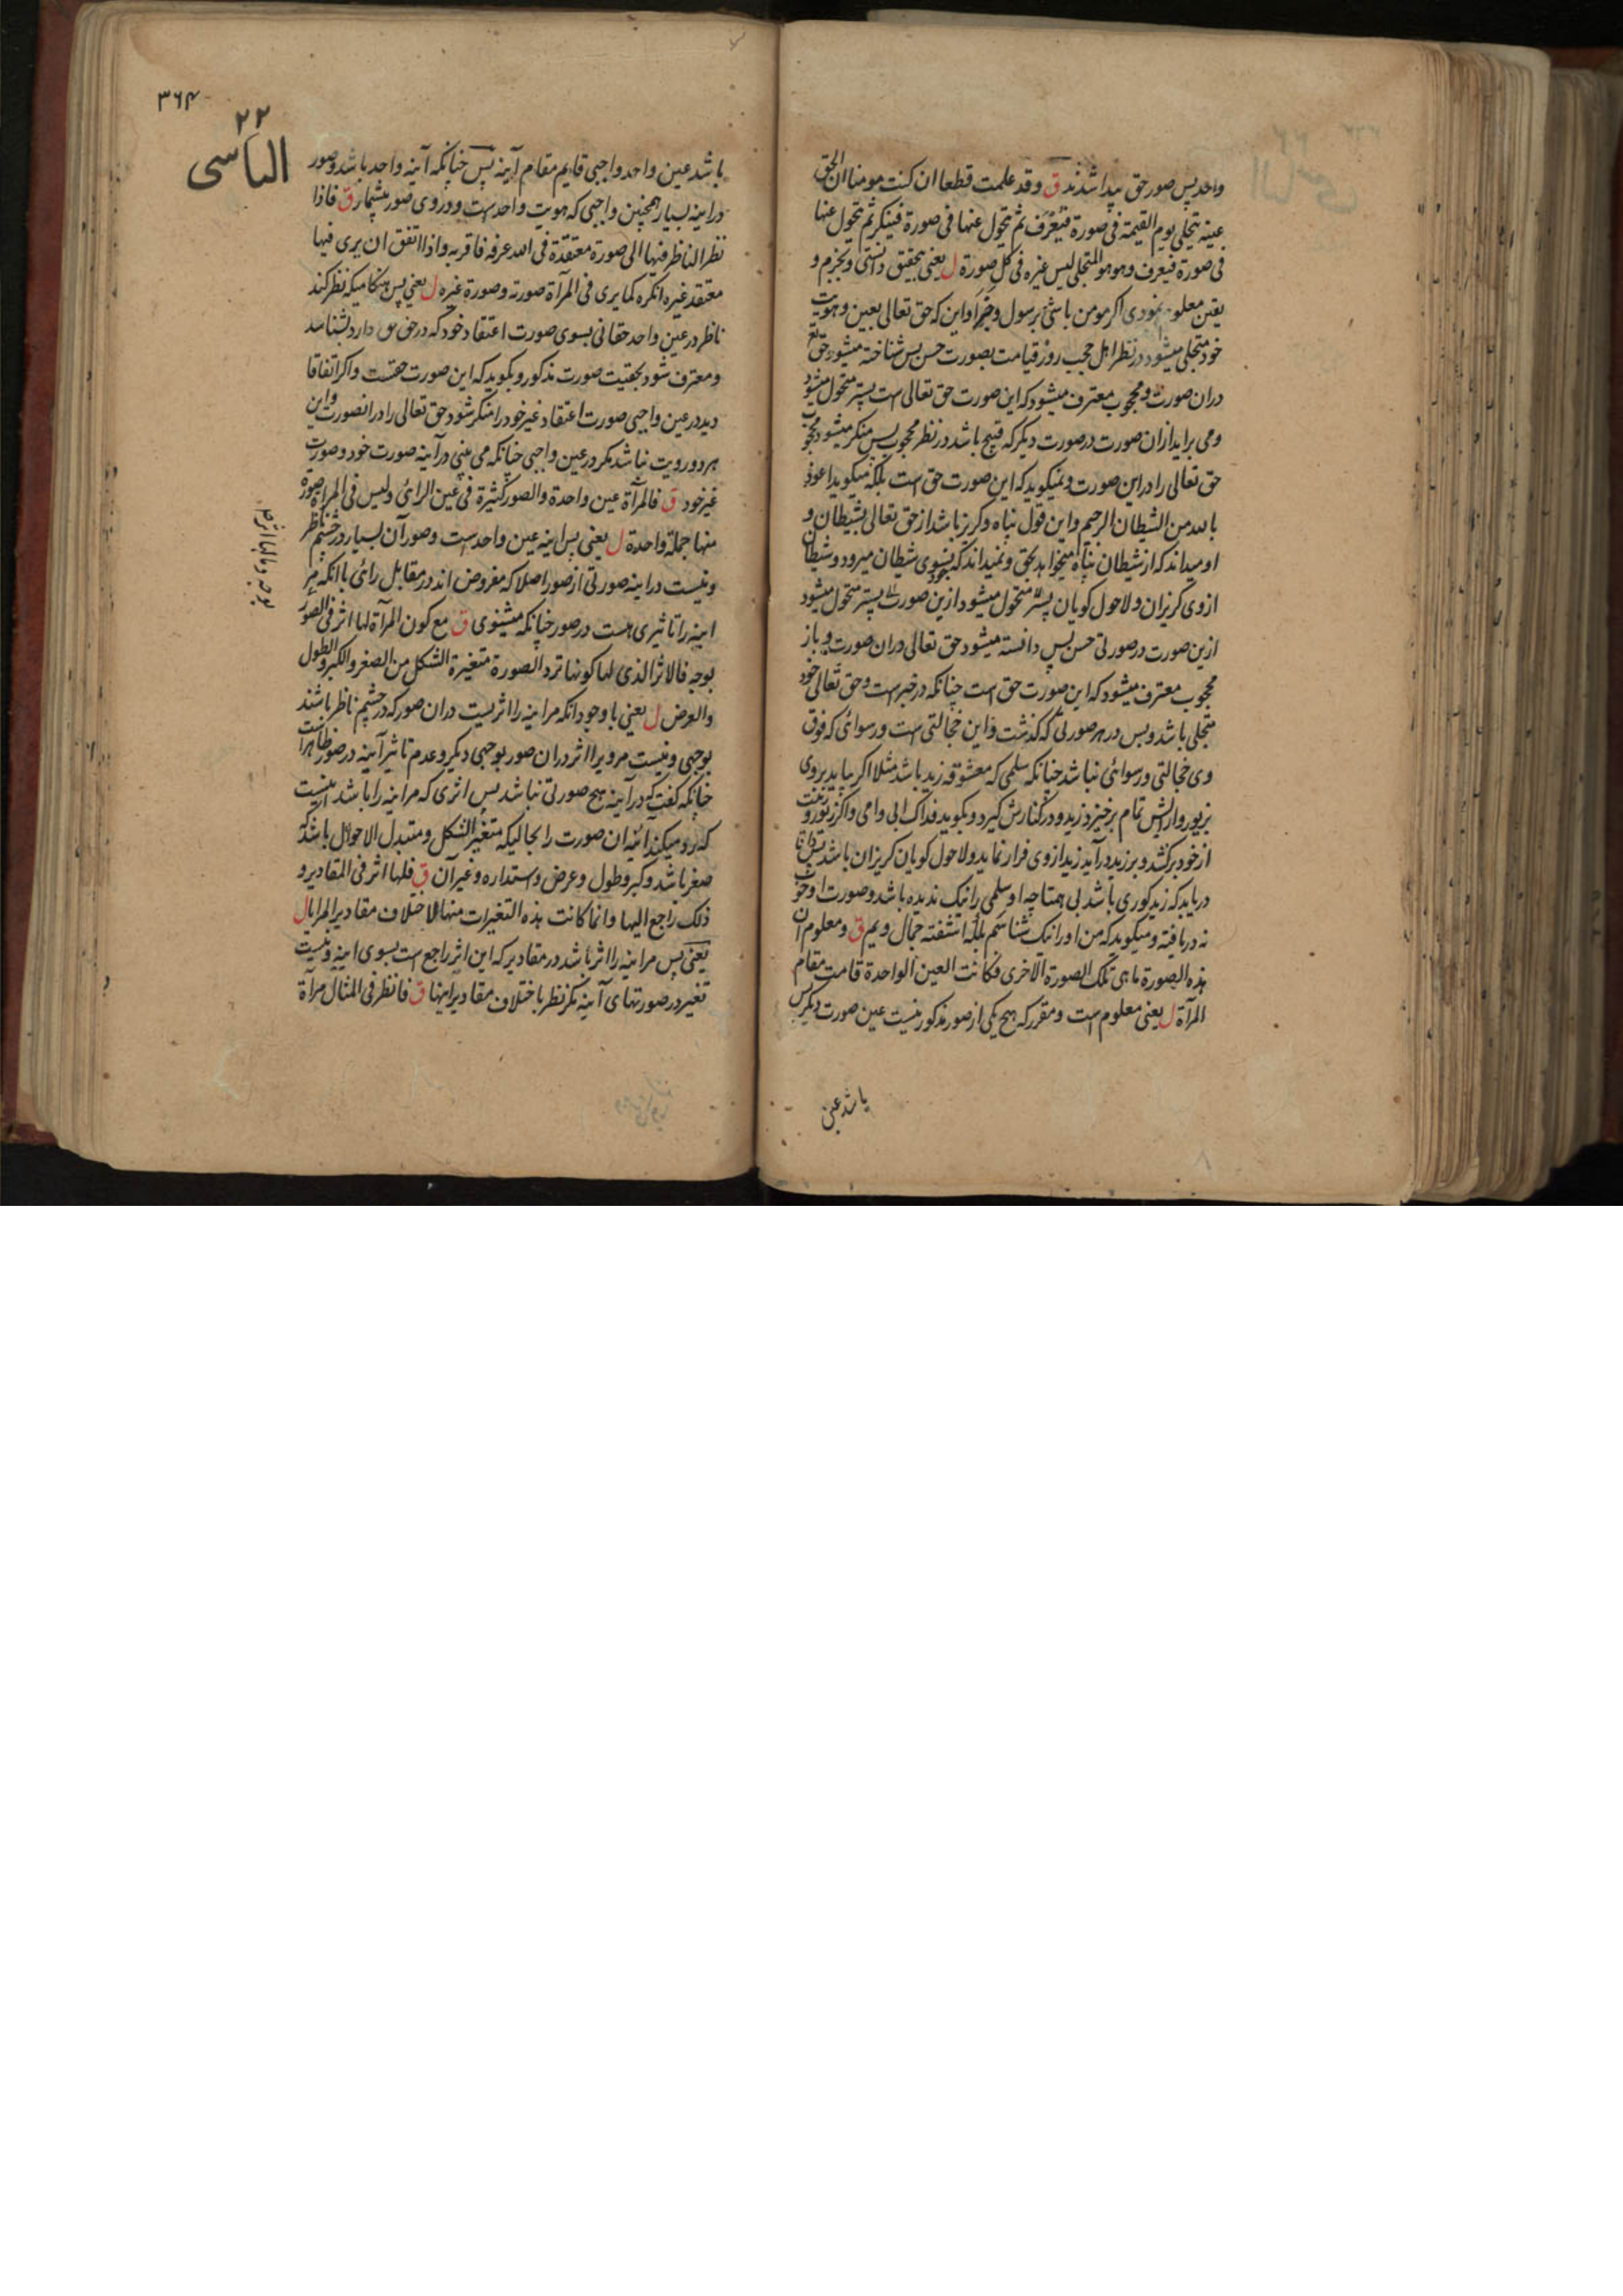 واحد پس صور حق پیدا شدند ق وقد علمت قطعا ان کنت مومنا ان الحق
عینه یتجلی یوم القیمة فی صورة فیعرف ثم یتحول عنها فی صورة فینکر ثم یتحول عنها
فی صورة فیعرف وهو هو المتجلی لیس غیره فی کل صورة ل یعنی بتحقیق دانستی وبجزم و
یقین معلوم نمودی اکر مومن باشی برسول وخبر او این که حق تعالی بعین وهویت
خود متجلی میشود در نظر اهل حجب روز قیامت بصورت حسن پس شناخته میشود حق تع
دران صورت ومحجوب معترف میشود که این صورت حق تعالی است پستر متحول میشود
ومی براید ازان صورت در صورت دیکر که قبیح باشد در نظر محجوب پس منکر میشود محجوب
حق تعالی را در این صورت ونمیکوید که این صورت حق است بلکه میکوید اعوذ
بالله من الشیطان الرجیم واین قول پناه وکریز باشد از حق تعالی بشیطان و
او میداند که از شیطان پناه میخواهد بحق ونمیداند که بسوی شیطان میرود وشیطان
ازوی کریزان ولاحول کویان پستر متحول میشود ازین صورت پستر متحول میشود
ازین صورت در صورتی حسن پس دانسته میشود حق تعالی دران صورت وباز
محجوب معترف میشود که این صورت حق است چنانکه در خبر است وحق تعالی خود
متجلی باشد وبس در هر صورتی که کذشت واین خجالتی است ورسوائی که فوق
وی خجالتی ورسوائی نباشد چنانکه سلمی که معشوقه زید باشد مثلا اکر بیاید بروی
بزیور وارایش تمام برخیزد زید ودر کنارش کیرد وبکوید فداک ابی وامی واکر زیور وزینت
از خود برکشد وبر زید درآید زید ازوی فرار نماید ولاحول کویان کریزان باشد
دریابد که زید کوری باشد بی همتا چه او سلمی را نیک ندیده باشد وصورت او خوب
نه دریافته ومیکوید که من او را نیک شناسم بلکه اشفته جمال ویم ق ومعلوم ان
هذه الصورة ما هی تلک الصورة الاخری فکانت العین الواحدة قامت مقام
المرآة ل یعنی معلوم است ومقرر که هیچ یکی از صور مذکور نیست عین صورت دیکر پس
باشد عین
۳۶۴
۲۲
الیاسی
باشد عین واحد واجبی قایم مقام آینه پس چنانکه آینه واحد باشد وصور
دراینه بسیار همچنین واجبی که هویت واحد است ودر وی صور بیشمار ق فاذا
نظر الناظر فیها الی صورة معتقده فی الله عرفه فاقر به واذا اتفق ان یری فیها
معتقد غیره انکره کما یری فی المرآة صورته وصورة غیره ل یعنی پس هنکامیکه نظر کند
ناظر در عین واحد حقانی بسوی صورت اعتقاد خود که در حق حق دارد بشناسد
ومعترف شود بحقیت صورت مذکور وبکوید که این صورت حقست واکر اتفاقا
دید در عین واجبی صورت اعتقاد غیر خود را منکر شود حق تعالی را درانصورت واین
هر دو رویت نباشد مکر در عین واجبی چنانکه می بینی در آینه صورت خود وصورت
غیر خود ق فالمرآة عین واحدة والصور کثیرة فی عین الرائی ولیس فی المرآة صورة
منها جملة واحدة ل یعنی پس اینه عین واحد ست وصور آن بسیار در چشم ناظر
ونیست دراینه صورتی از صور اصلا که مفروض اند در مقابل رائی با انکه مر
اینه را تاثیری هست در صور چنانکه میشنوی ق مع کون المرآة لها اثر فی الصور
بوجه فالاثر الذی لها کونها ترد الصورة متغیرة الشکل من الصغر والکبر والطول
والعرض ل یعنی با وجود انکه مر اینه را اثریست دران صور که در چشم ناظر باشند
بوجهی ونیست مر ویرا اثر دران صور بوجهی دیکر وعدم تاثیر آینه در صور ظاهر است
چنانکه کفت که درآینه هیچ صورتی نباشد پس اثری که مر اینه را باشد اینست
که رد میکند آئینه ان صورت را بحالیکه متغیر الشکل ومتبدل الاحوال باشد که
صغر باشد وکبر وطول وعرض واستداره وغیر آن ق فلها اثر فی المقادیر و
ذلک راجع الیها وانما کانت هذه التغیرات منها لاختلاف مقادیر المرایا ل
یعنی پس مر اینه را اثر باشد در مقادیر که این اثر راجع است بسوی اینه ونیست
تغیر در صورتهای آینه مکر نظر باختلاف مقادیر اینها ق فانظر فی المثال مرآة
بوجه وما لها اثر بوجه